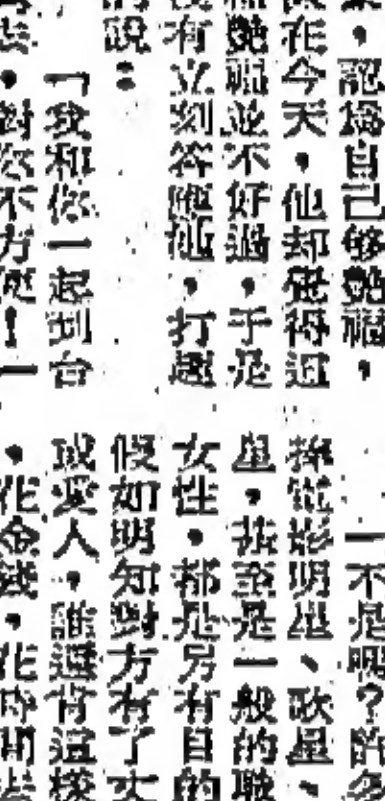 ，認為自己夠艷福，
在今天，他却覺得這
艷福並不好過，于是
有立刻答應他，打趣
說：
「我和你一起到台
，對你不方便！一
一不是嗎？許多
電影明星、歌星、
星，甚至是一般的職
女性，都是另有目的
假如明知對方有了丈
或愛人，誰還肯這樣
，花金錢，花時間去